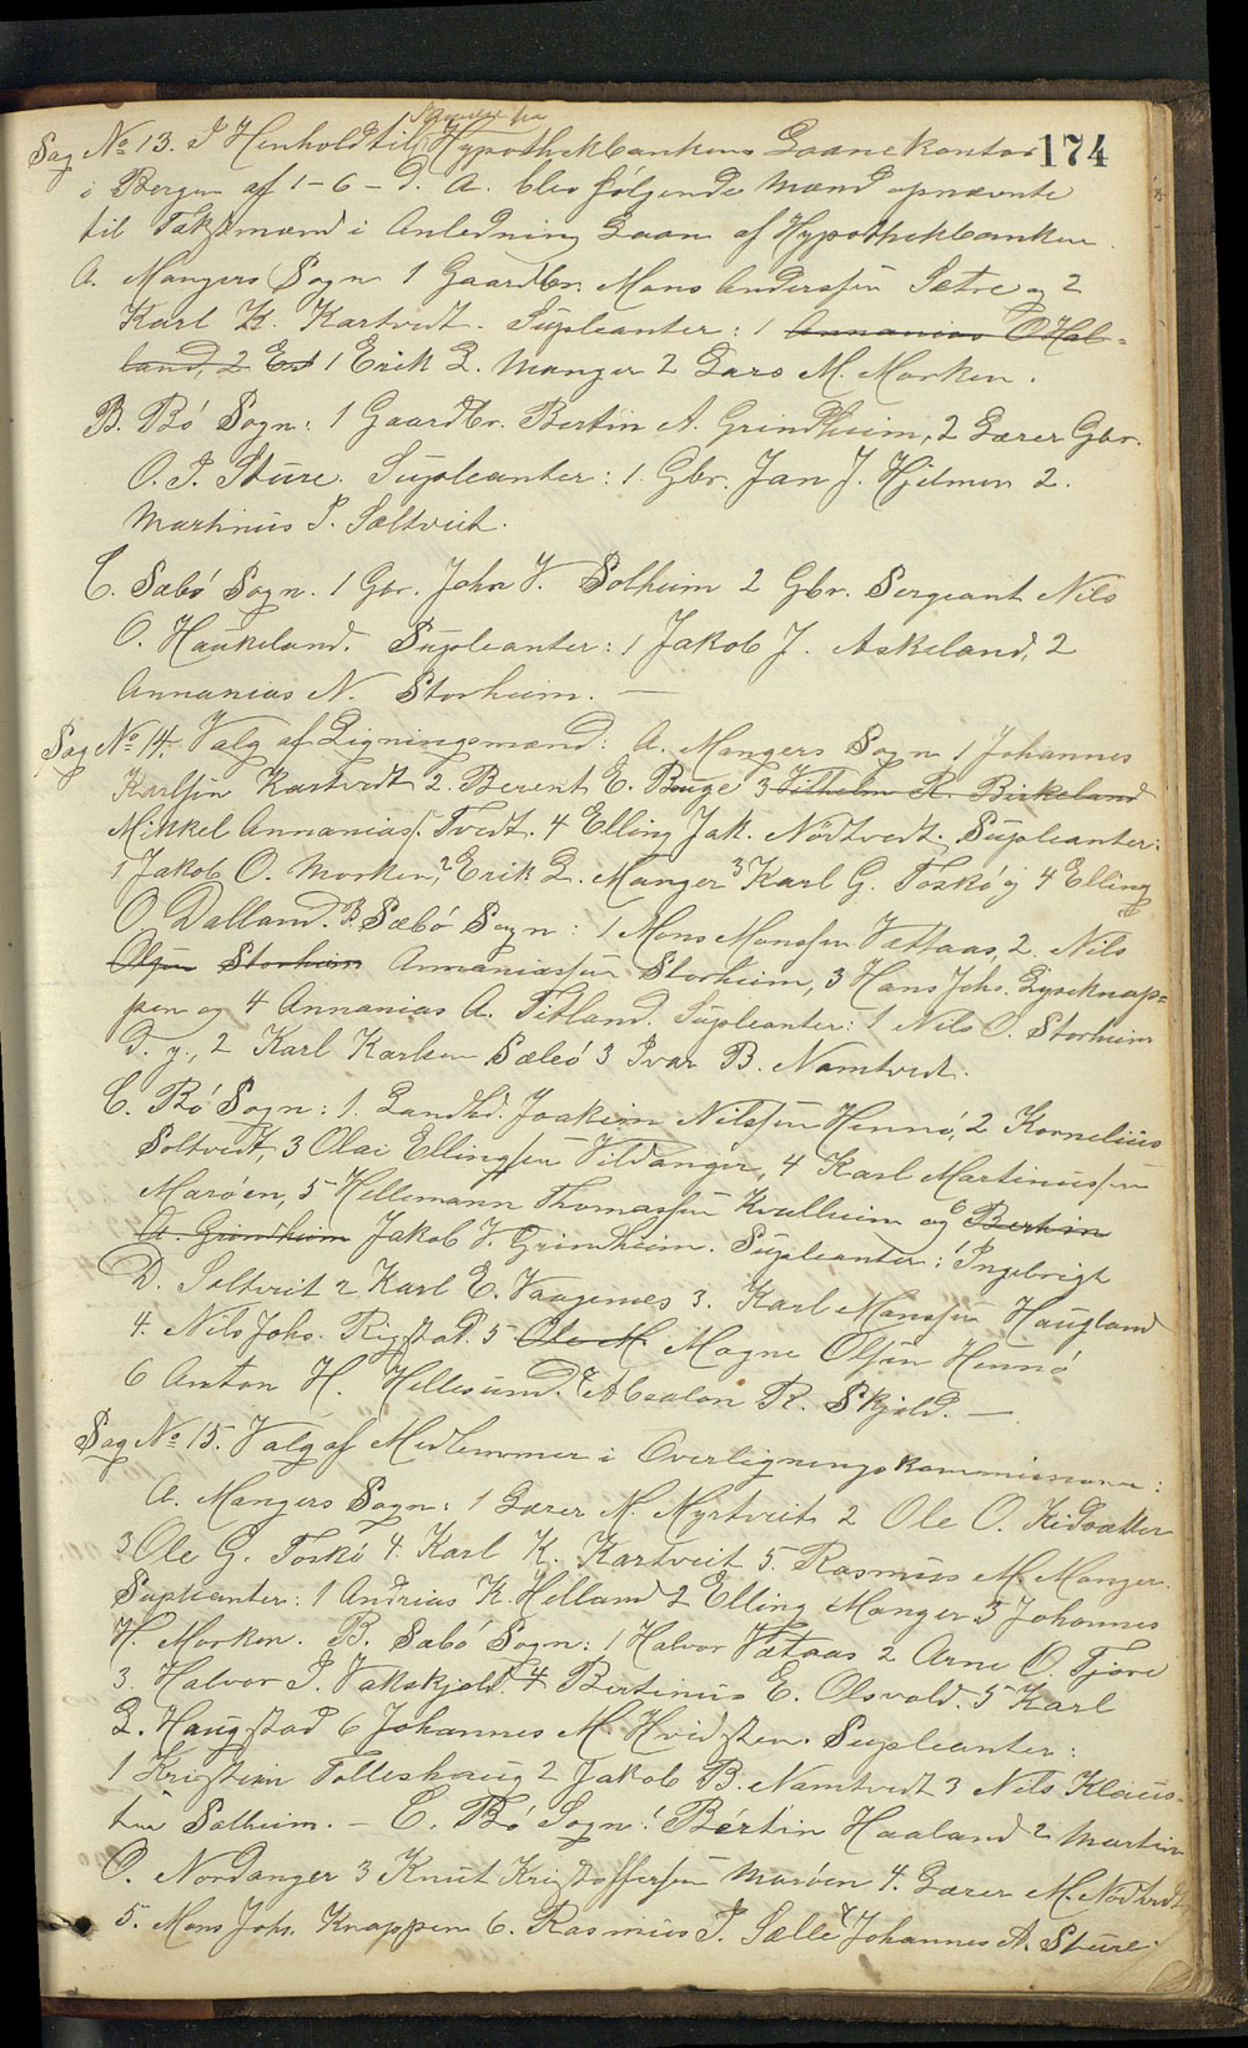 174
Sag No 13. I Henhold til Skrivelse fra Hypothekbankens Laanekontor
i Bergen af 1-6-d. A. blev følgende Mænd opnævnte
til Takstmænd i Anledning Laan af Hypothekbanken.
A. Mangers Sogn 1 Gaardbr. Mons Anderssen Sætre og 2
Karl K. Kartvedt. Supleanter: 1 Annanias O Hal-
land, 2 Er 1 Erik L. Manger 2 Lars M. Morken.
B. Bö Sogn: 1 Gaardbr. Bertin A. Grindheim, 2 Lærer Gbr.
O. I. Sture. Supleanter: 1. Gbr. Jan J. Hjelmen 2.
Martinus P. Sæltveit.
C. Sæbö Sogn. 1 Gbr. John V. Solheim 2 Gbr. Sergeant Nils
O. Haukeland. Supleanter: 1 Jakob J. Askeland, 2
Annanias N. Storheim. —
Sag No 14. Valg af Ligningsmænd: A. Mangers Sogn 1 Johannes
Karlsen Kartvedt 2. Berent E. Bauge 3 Vilhelm R. Birkeland
Mikkel Annanias. Tvedt. 4 Elling Jak. Nödtvedt. Supleanter:
1 Jakob O. Morken, 2 Erik L. Manger 3 Karl G. Toskö og 4 Elling
O Dalland. B. Sæbö Sogn: 1 Mons Monssen Vættaas, 2. Nils
Olsen Storheim Annaniassen Storheim, 3 Hans Johs. Lyseknap=
pen og 4 Annanias A. Titland. Supleanter: 1 Nils O. Storheim
d. y., 2 Karl Karlsen Sæleö 3 Ivar B. Namtvedt.
C. Bö Sogn: 1. Landhd. Joakim Nilssen Hennö, 2 Kornelius
Soltvedt, 3 Olai Ellingsen Vildanger, 4 Karl Martinussen
Maröen, 5 Hellemann Thomassen Kvalheim og 6 Bertin
A. Grindheim Jakob V. Grindheim. Supleanter: 1 Ingebrigt
D. Soltveit 2 Karl E. Vaagenes 3. Karl Monssen Haugland
4. Nils Johs. Rigstad. 5 Ole M Magne Olsen Hennö
6 Anton H. Hellesund. 7 Absalon R. Skjeld. —
Sag No 15. Valg af Medlemmer i Overligningskommissionen:
A. Mangers Sogn: 1 Lærer M. Myrtveit 2 Ole O. Kidsætter
3 Ole G. Toskö 4. Karl K. Kartveit 5. Rasmus M. Manger.
Supleanter: 1 Andrias K. Helland 2 Elling Manger 3 Johannes
H. Morken. B. Sæbö Sogn: 1 Halvor Vætaas 2 Arne O. Tjore
3. Halvor I. Vatskjold. 4 Bertinus E. Olsvold. 5 Karl
L. Haugstad 6 Johannes M. Hvidsten. Supleanter:
1 Kristian Tolleshaug 2 Jakob B. Namtvedt 3 Nils Klaus-
sen Solheim. – C. Bö Sogn: 1 Bertin Haaland 2 Martin
O. Nordanger 3 Knut Kristoffersen Maröen 4. Lærer M. Nödtvedt
5. Mons Johs. Knappen 6. Rasmus P. Sælle 7 Johannes A. Sture.